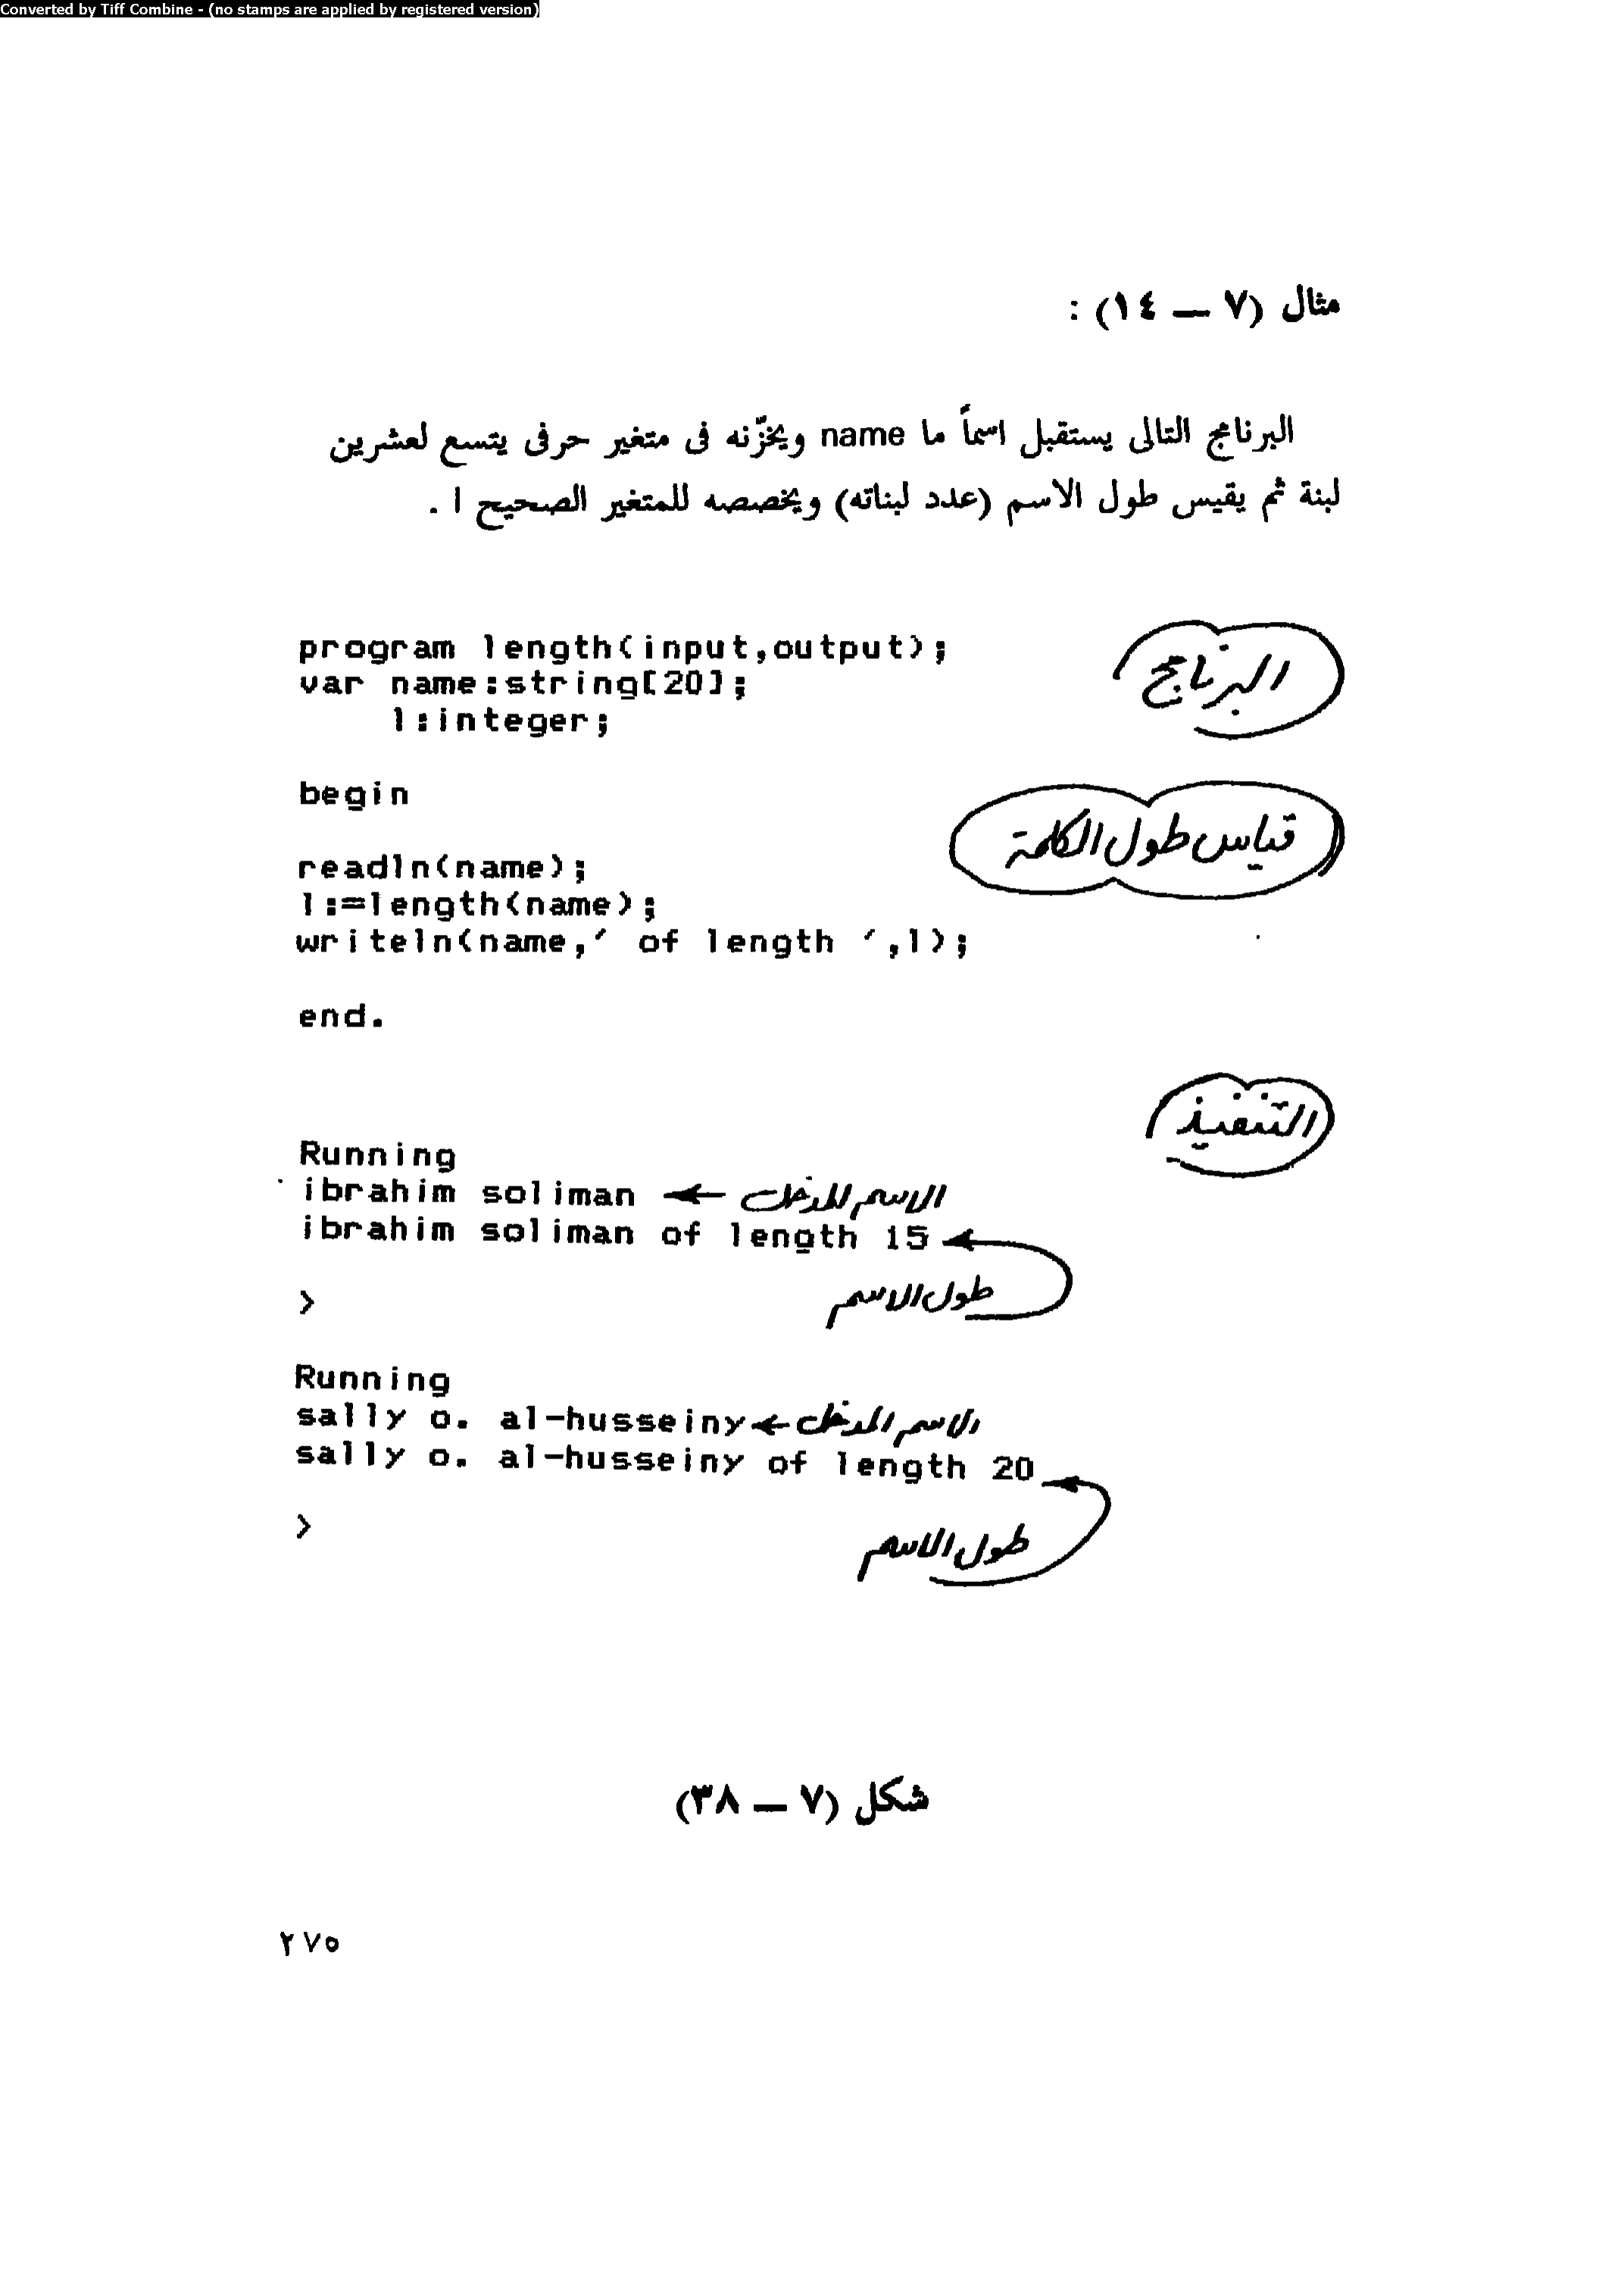 Converted by Tiff Combine - (no stamps are applied by registered version)
مثال (٧ — ١٤) :
البرنامج التالى يستقبل اسماً ما name ويخزّنه فى متغير حرفى يتسع لعشرين
لبنة ثم يقيس طول الاسم (عدد لبناته) ويخصصه للمتغير الصحيح l .
program length(input,output);
البرنامج
var name:string[20];
l:integer;
begin
قياس طول الكلمة
readln(name);
l:=length(name);
writeln(name,' of length ',l);
end.
التنفيذ
Running
ibrahim soliman ← الاسم المدخل
ibrahim soliman of length 15
> طول الاسم
Running
sally o. al-husseiny ← الاسم المدخل
sally o. al-husseiny of length 20
> طول الاسم
شكل (٧ — ٣٨)
٢٧٥